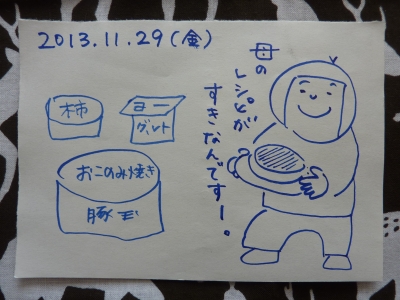 2013.11.29(金)
母の
レシピが
すきなんですー。
柿
ヨー
グルト
おこのみ焼き
豚玉